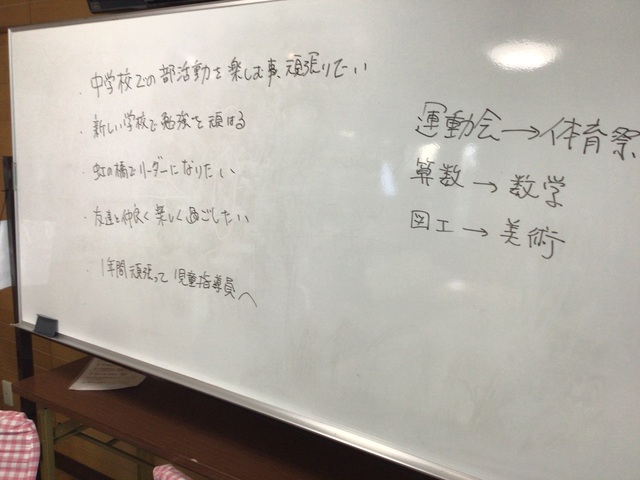 ・中学校での部活動を楽しむ事、頑張りたい
・新しい学校で勉強を頑はる
・虹の橋でリーダーになりたい
・友達と仲良く楽しく過ごしたい
・1年間頑張って児童指導員へ
運動会→体育祭
算数→数学
図工→美術